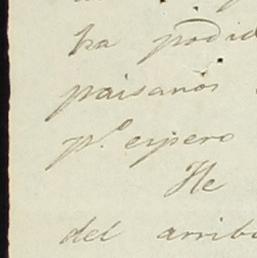 ha podid
paisanos
pº espero
He
del arrib